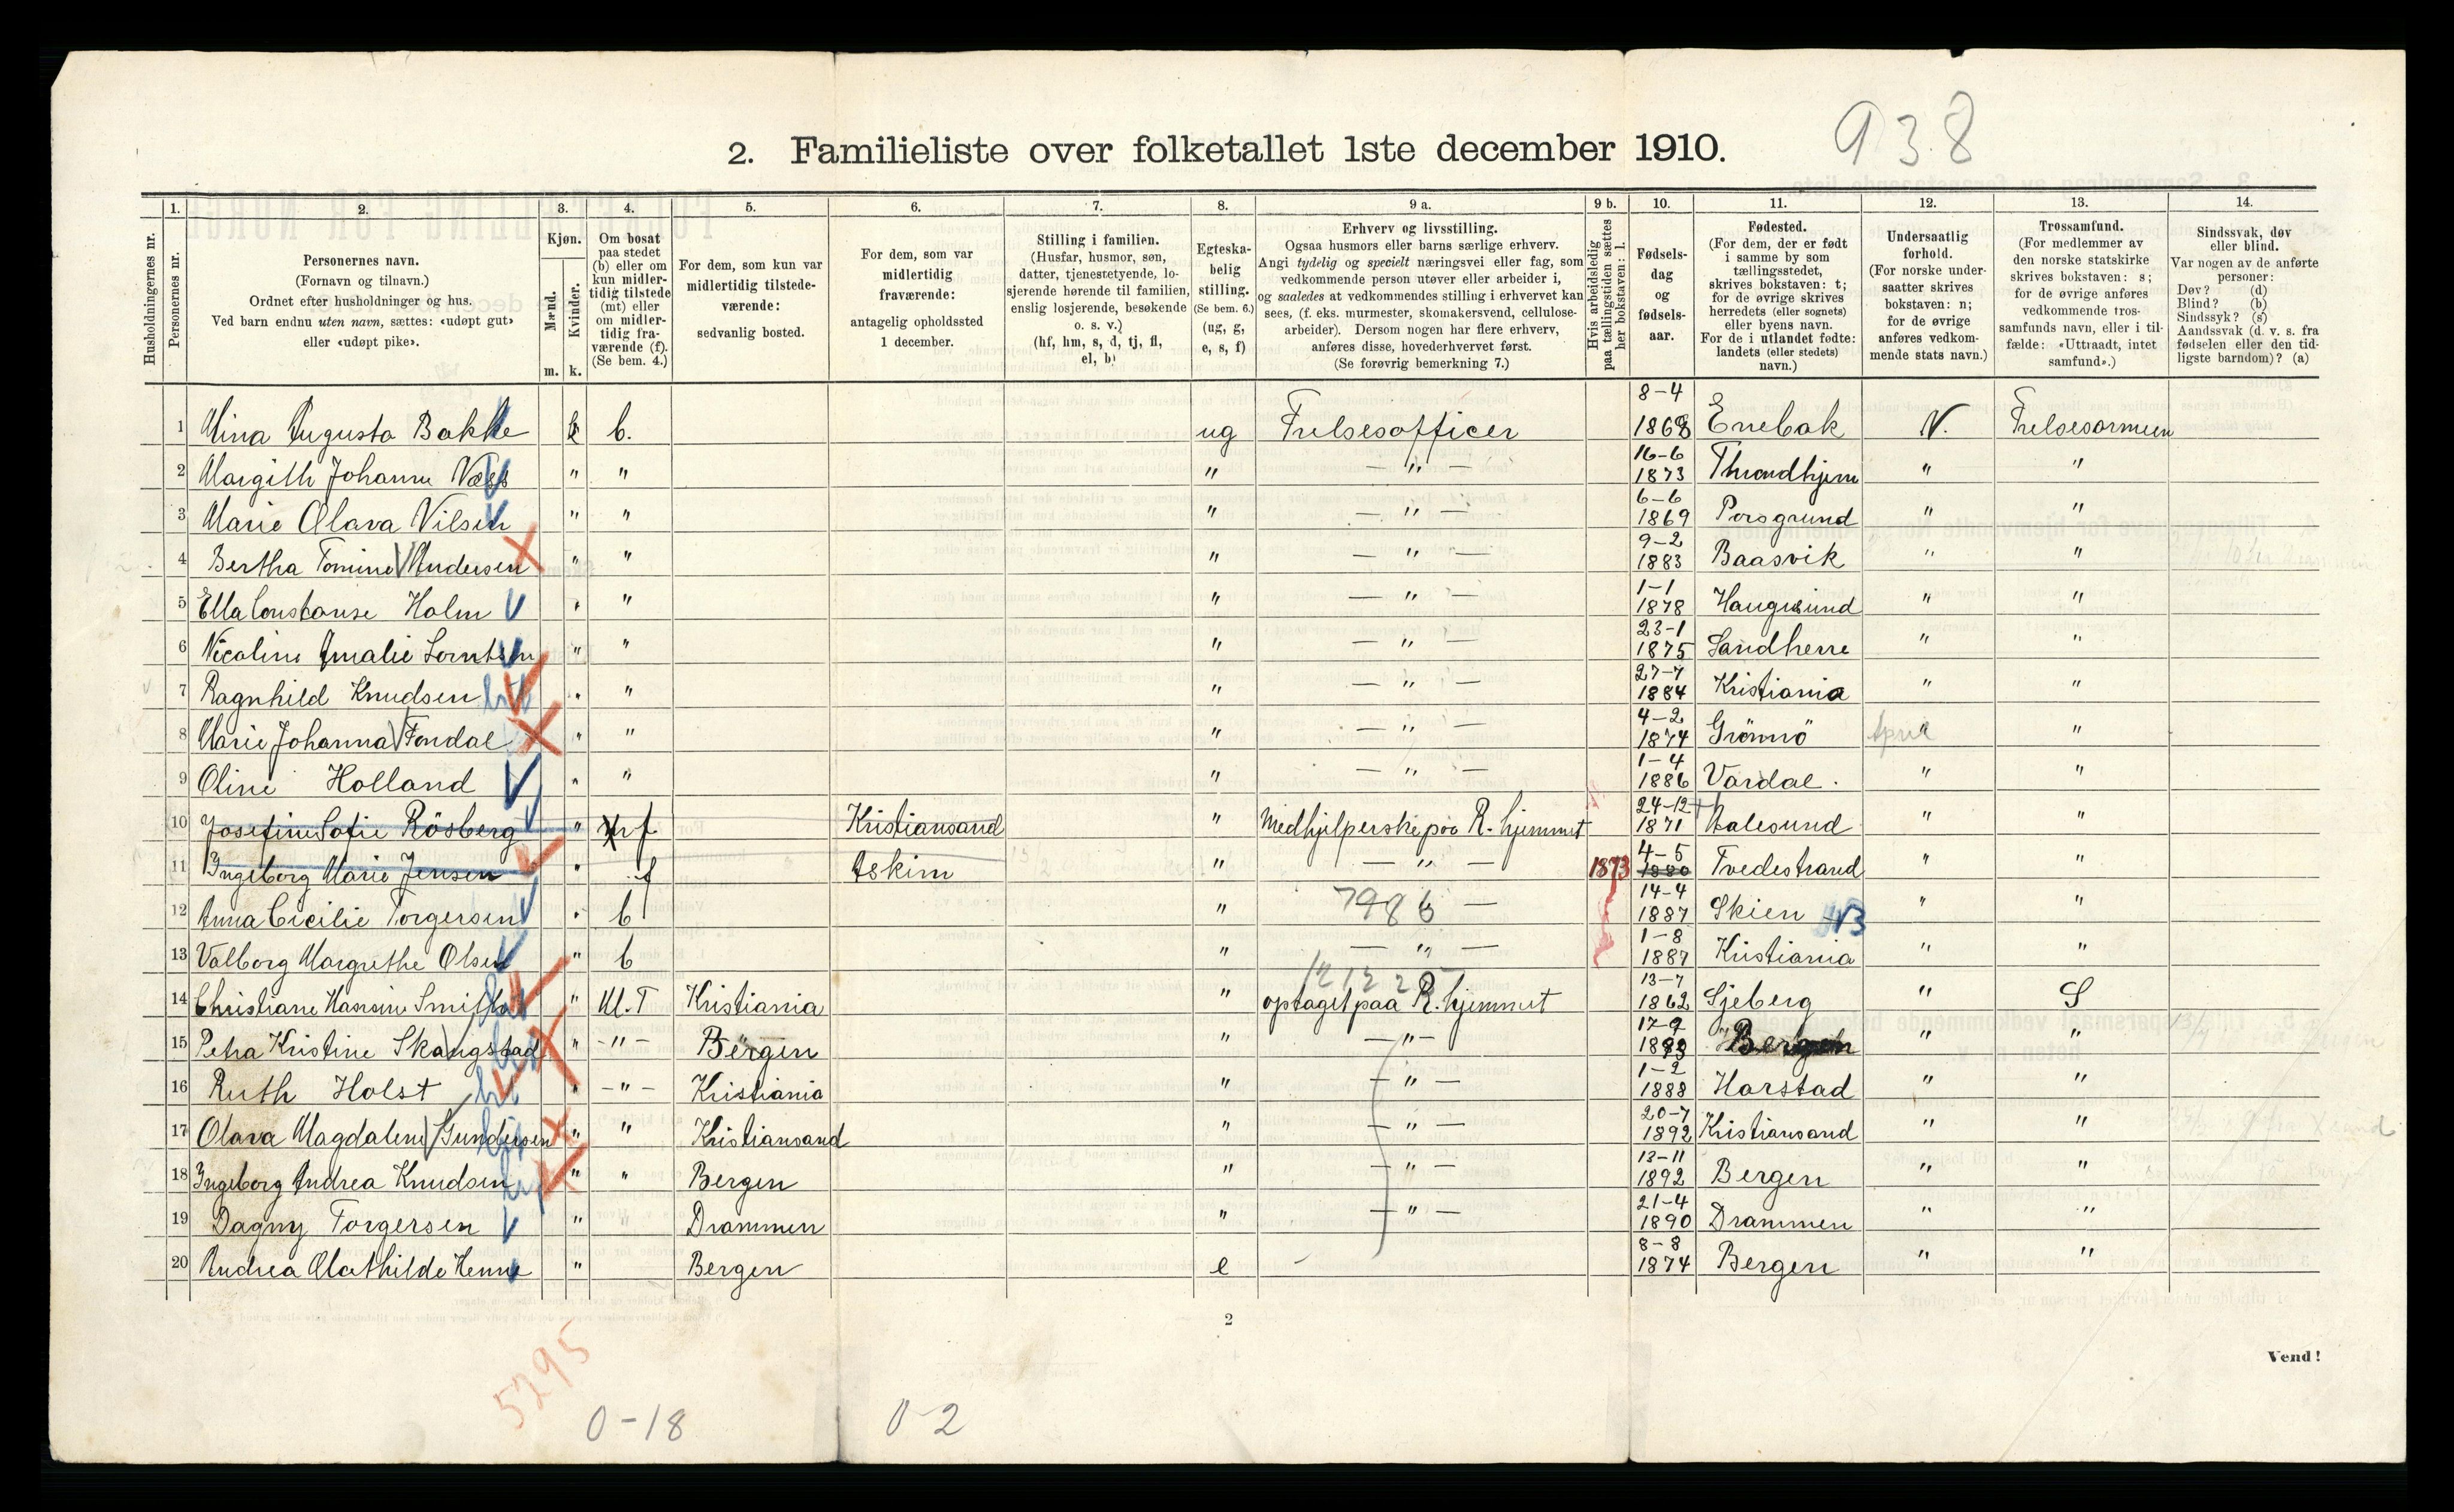 938
2. Familieliste over folketallet 1ste december 1910.
1. 2. 3. 4. 5. 6. 7. 8. 9 a. 9 b. 10. 11. 12. 13. 14.
Husholdningernes nr.
Personernes nr.
Personernes navn.
(Fornavn og tilnavn.)
Ordnet efter husholdninger og hus.
Ved barn endnu uten navn, sættes: «udøpt gut»
eller «udøpt pike».
Kjøn.
Mænd.
Kvinder.
m. k.
Om bosat
paa stedet
(b) eller om
kun midler-
tidig tilstede
(mt) eller
om midler-
tidig fra-
værende (f).
(Se bem. 4.)
For dem, som kun var
midlertidig tilstede-
værende:
sedvanlig bosted.
For dem, som var
midlertidig
fraværende:
antagelig opholdssted
1 december.
Stilling i familien.
(Husfar, husmor, søn,
datter, tjenestetyende, lo-
sjerende hørende til familien,
enslig losjerende, besøkende
o. s. v.)
(hf, hm, s, d, tj, fl,
el, b)
Egteska-
belig
stilling.
(Se bem. 6.)
(ug, g,
e, s, f)
Erhverv og livsstilling.
Ogsaa husmors eller barns særlige erhverv.
Angi tydelig og specielt næringsvei eller fag, som
vedkommende person utøver eller arbeider i,
og saaledes at vedkommendes stilling i erhvervet kan
sees, (f. eks. murmester, skomakersvend, cellulose-
arbeider). Dersom nogen har flere erhverv,
anføres disse, hovederhvervet først.
(Se forøvrig bemerkning 7.)
Hvis arbeidsledig
paa tællingstiden sættes
her bokstaven: l.
Fødsels-
dag
og
fødsels-
aar.
Fødested.
(For dem, der er født
i samme by som
tællingsstedet,
skrives bokstaven: t;
for de øvrige skrives
herredets (eller sognets)
eller byens navn.
For de i utlandet fødte:
landets (eller stedets)
navn.)
Undersaatlig
forhold.
(For norske under-
saatter skrives
bokstaven: n;
for de øvrige
anføres vedkom-
mende stats navn.)
Trossamfund.
(For medlemmer av
den norske statskirke
skrives bokstaven: s;
for de øvrige anføres
vedkommende tros-
samfunds navn, eller i til-
fælde: «Uttraadt, intet
samfund».)
Sindssvak, døv
eller blind.
Var nogen av de anførte
personer:
Døv? (d)
Blind? (b)
Sindssyk? (s)
Aandssvak (d. v. s. fra
fødselen eller den tid-
ligste barndom)? (a)
1 Mina Augusta Bakke k b. ug Frelsesofficer 8-4 1868 Enebak N. Frelsesarmeen
2 Margith Johanne Næss " " " — " — 16-6 1873 Throndhjem " "
3 Marie Olava Nilsen " " " — " — 6-6 1869 Porsgrund " "
4 Bertha Tomine Andersen " " " — " — 9-2 1883 Baasvik " "
5 Ella Constanse Holm " " " — " — 1-1 1878 Haugesund " "
6 Nicoline Amalie Lorntsen " " " — " — 23-1 1875 Sandherre " "
7 Ragnhild Knudsen " " " — " — 27-7 1884 Kristiania " "
8 Marie Johanna Fondal " " " — " — 4-2 1874 Grönnö " "
9 Oline Holland " " " — " — 1-4 1886 Vardal. " "
10 Josefine Sofie Rösberg " f Kristiansand " Medhjelperske paa R. hjemmet 24-12 1871 Aalesund " "
11 Ingeborg Marie Jensen " f Askim " — " — 1873 4-5 1880 Tvedestrand " "
12 Anna Cicilie Torgersen " b " 7986 — 14-4 1887 Skien " "
13 Valborg Margrethe Olsen " b " — " — 1-8 1887 Kristiania " "
14 Christiane Hansine Smith " M.T Kristiania " optaget paa R. hjemmet 13-7 1862 Sjeberg " S
15 Petra Kristine Skaugstad " -"- Bergen " —"— 17-9 1893 Bergen " "
16 Ruth Holst " -"- Kristiania " — " — 1-2 1888 Harstad " "
17 Olava Magdalene Gundersen " " Kristiansand " — " — 20-7 1892 Kristiansand " "
18 Ingeborg Andrea Knudsen " " Bergen " — " — 13-11 1892 Bergen " "
19 Dagny Torgersen " " Drammen " — " — 21-4 1890 Drammen " "
20 Andrea Mathilde Henne " Bergen e - 8-8 1874 Bergen " "
2
Vend!
5295
0-18
0-2